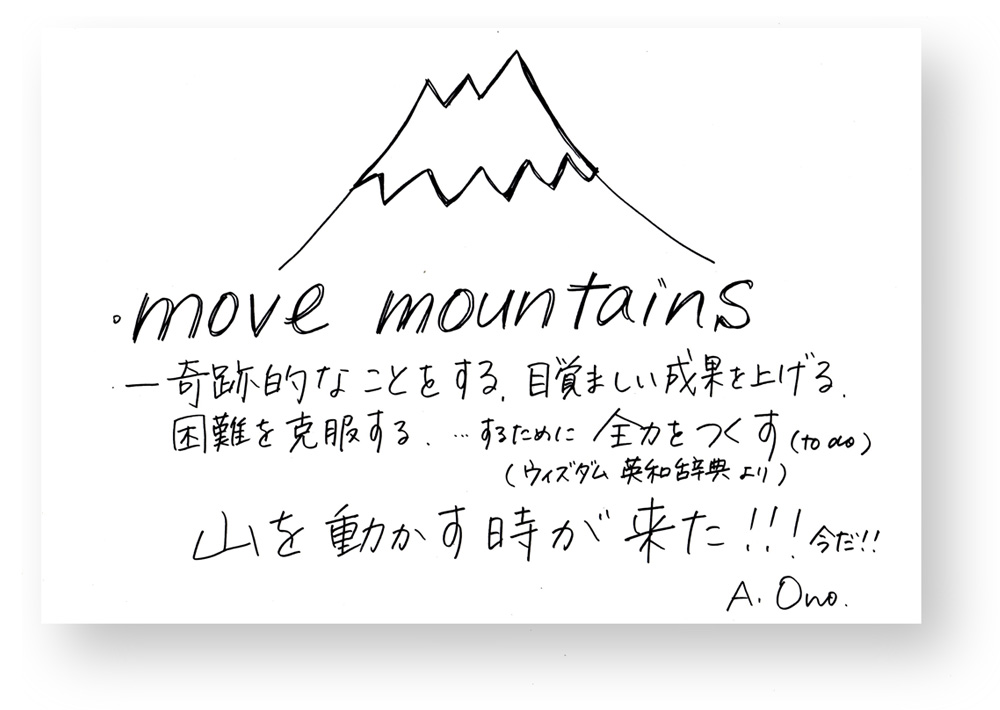 ・move mountains
― 奇跡的なことをする, 目覚ましい成果を上げる,
困難を克服する, …するために 全力をつくす (to do)
(ウィズダム 英和辞典 より)
山を動かす時が来た!!! 今だ!!
A. Ono.